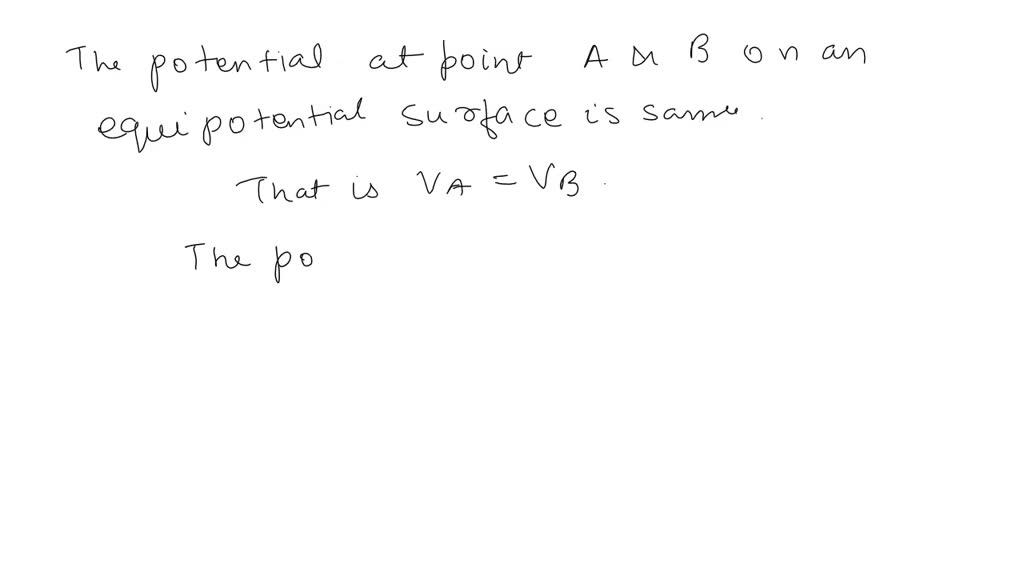 The potential at point A & B on an
equipotential surface is same.
That is VA = VB.
The po